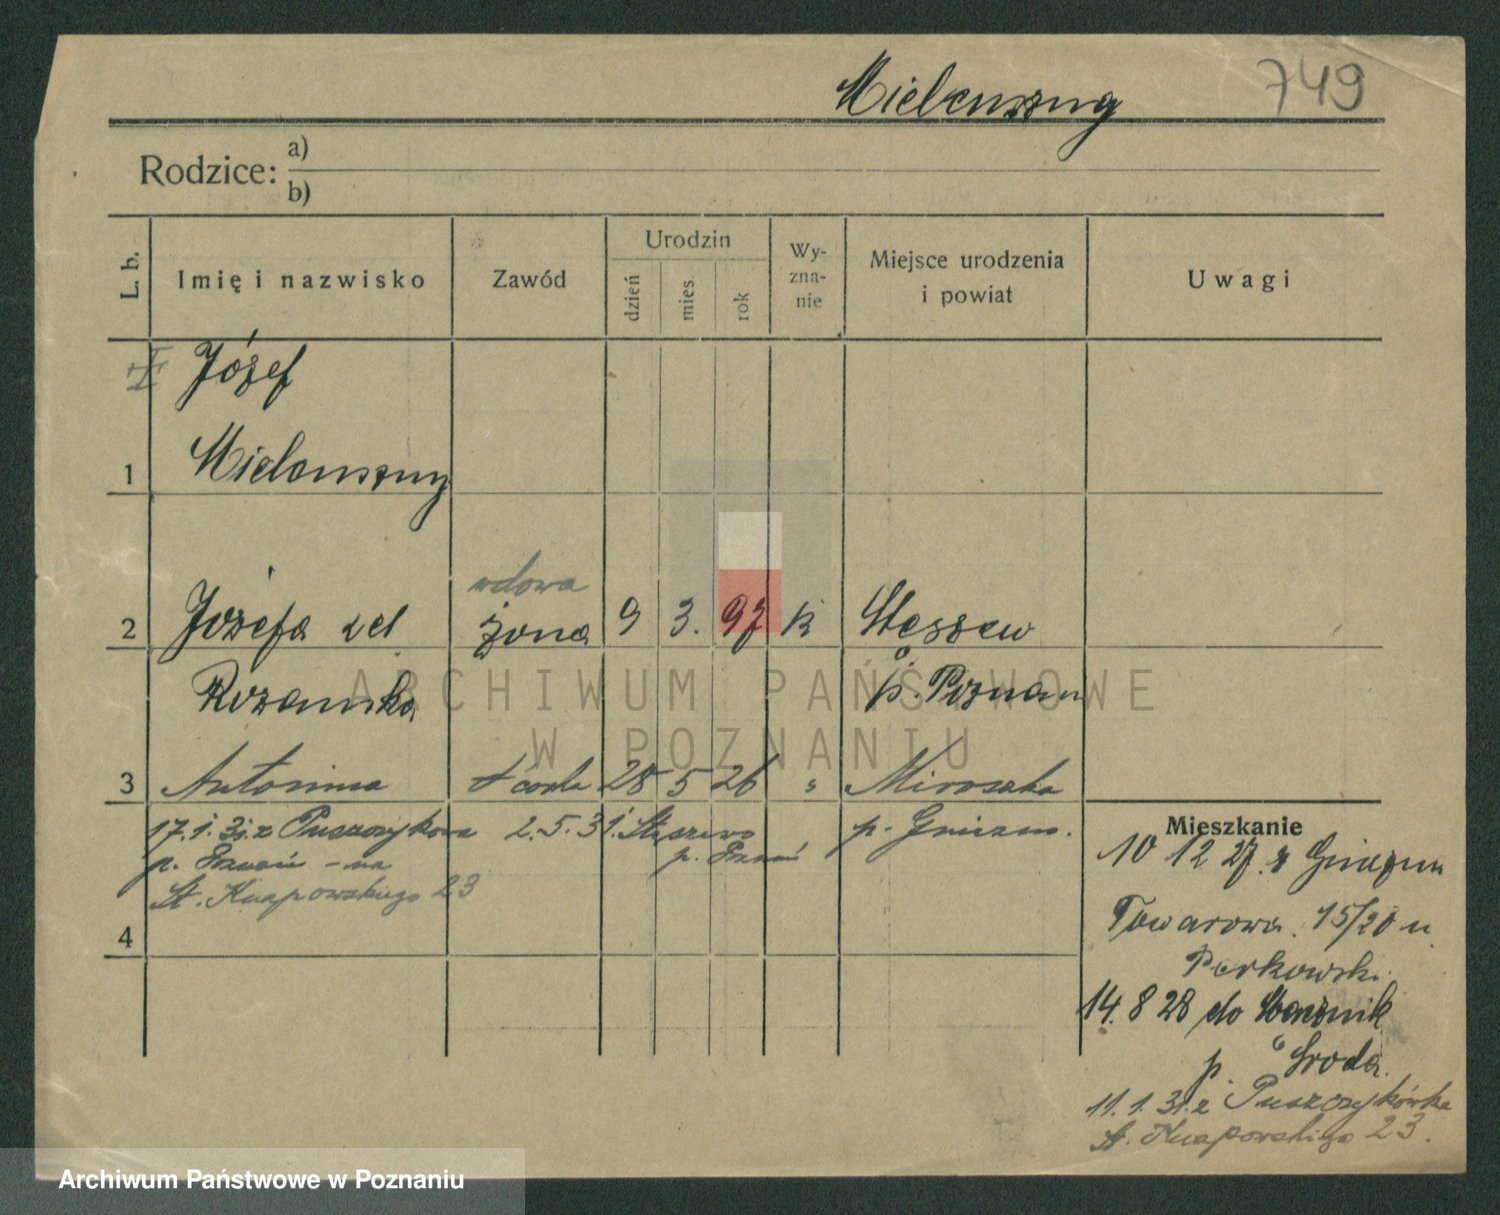 749
Rodzice: a)
b)
L. b.
Imię i nazwisko
Zawód
Urodzin
dzień
mies
rok
Wy-
zna-
nie
Miejsce urodzenia
i powiat
Uwagi
Józef
1
2 Józefa żona 9 3. 97 k Stęszew
wdowa
p. Poznań
3 Antonina córka 28 5 26 " Miroszka
17.1.31. z Puszczykowa 2.5.31. Stęszewo
p. Gniezno.
p. Poznań - na
p. Poznań
St. Knapowskiego 23
4
Mieszkanie
10 12 27. z Gniezna
Towarowa. 15/20 u
14. 8 28 do
p. Środa.
11. 1. 31. z Puszczykówka
St. Knapowskiego 23.
ARCHIWUM PAŃSTWOWE
W POZNANIU
Archiwum Państwowe w Poznaniu